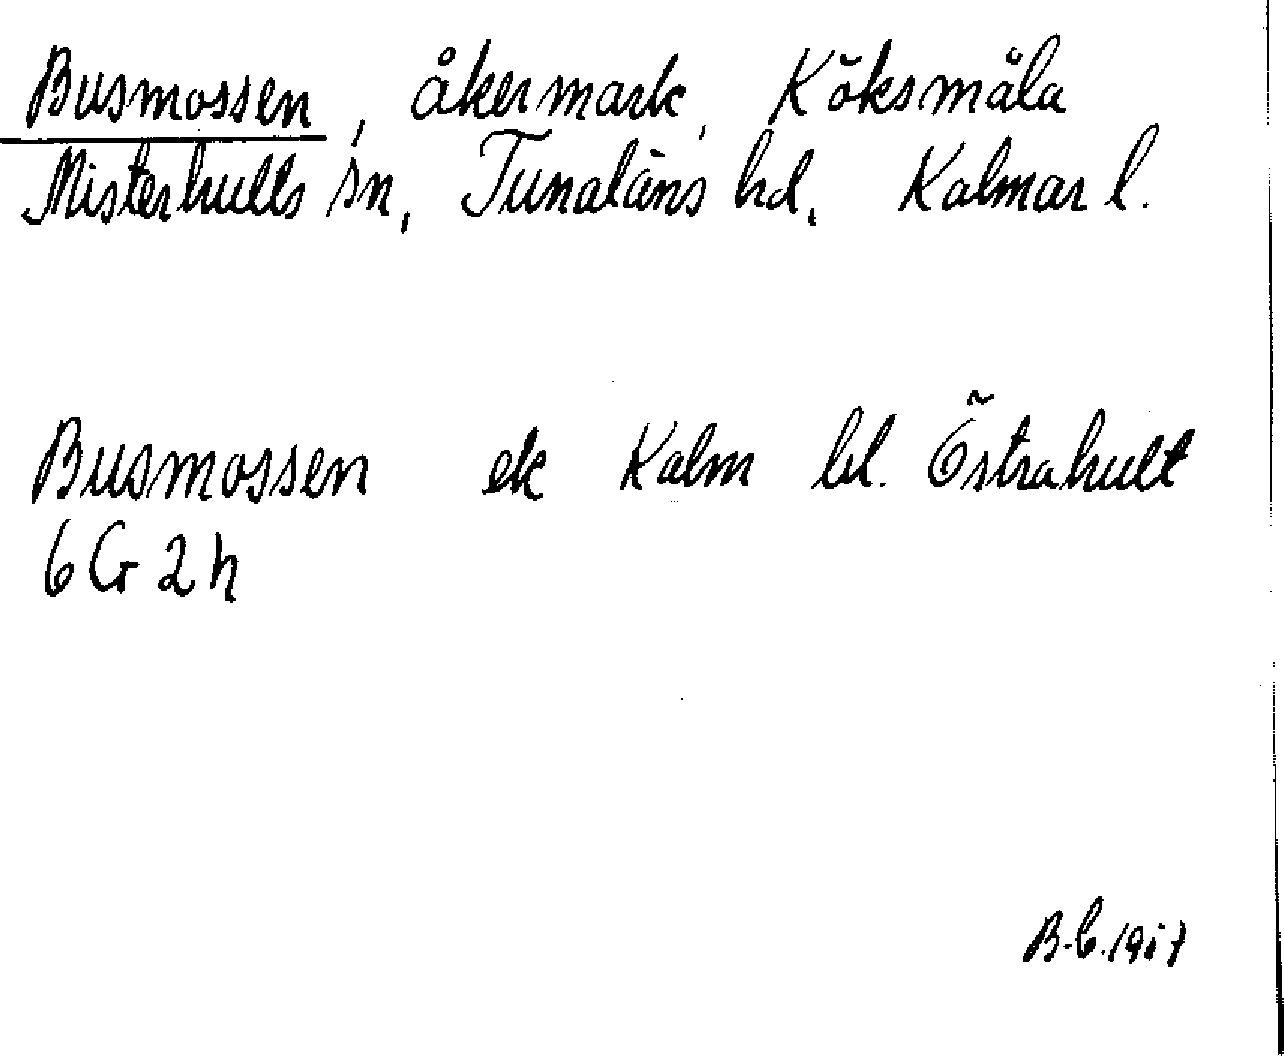 Busmossen, åkermark, Köksmåla
Misterhults sn, Tunaläns hd, Kalmar l.
Busmossen ek Kalm bd. Östrahult
6 G 2 h